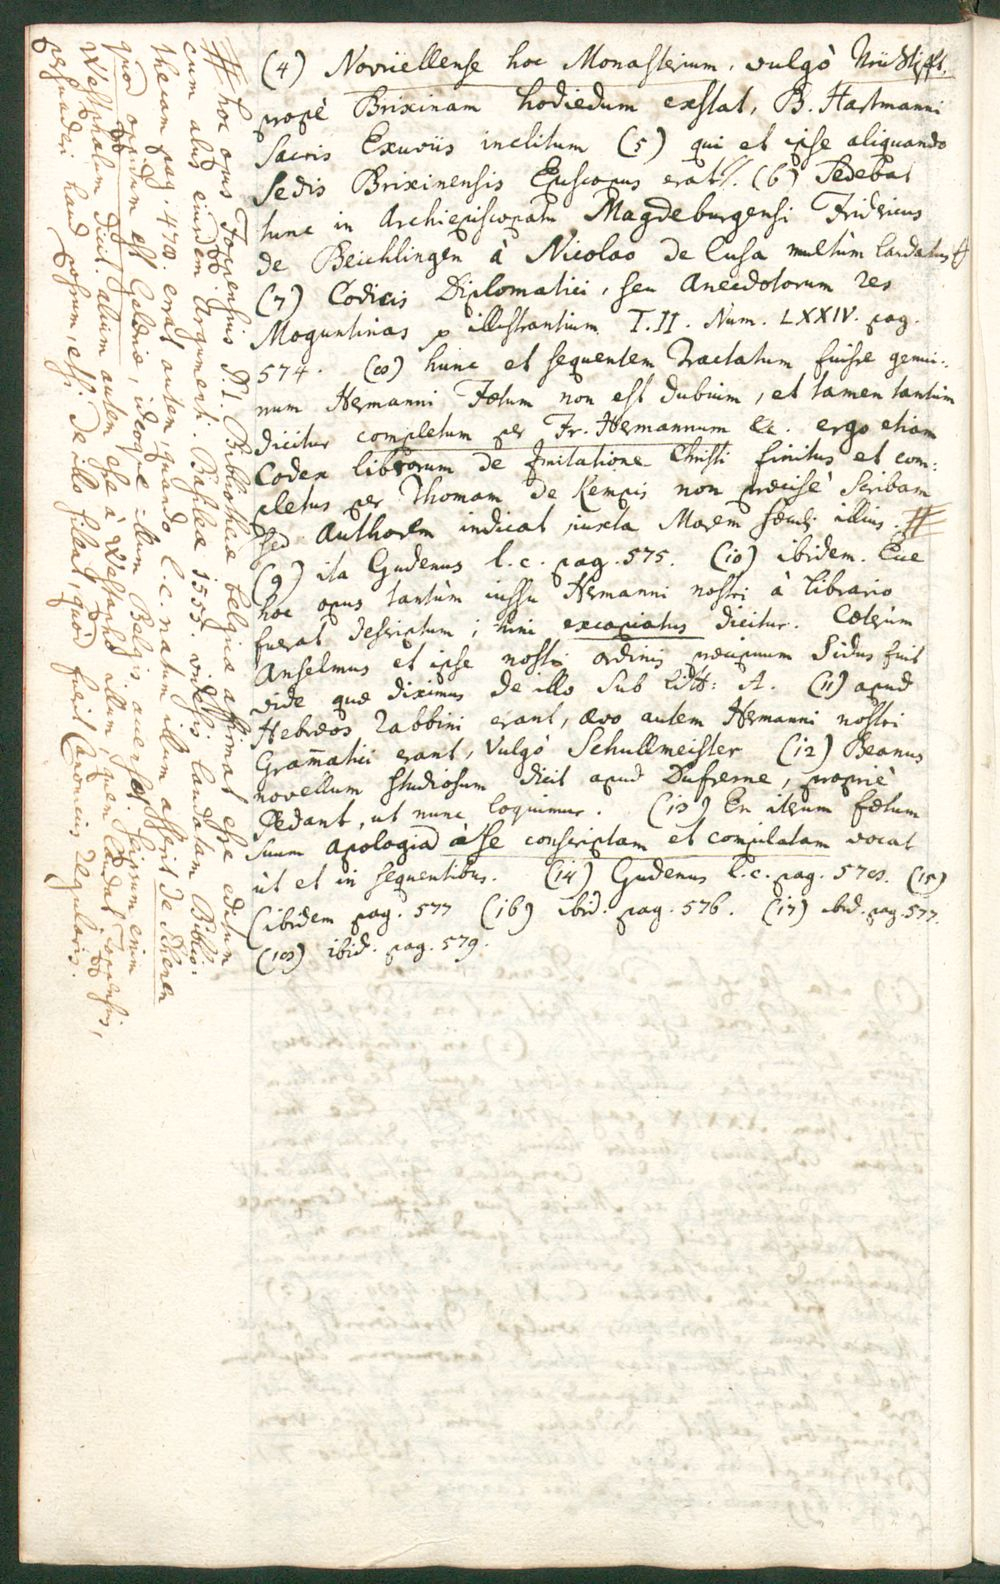 (4) Novïiellense hoc Monasterium, vulgò Nëu Stifft,
propè Brixinam hodiedum exstat, B. Hartmanni
Sacris Exuviis inclitum (5) qui et ipse aliquando
Sedis Brixinensis Episcopus erat. (6) Sedebat
tunc in Archiepiscopatu Magdeburgensi Fridericus
de Beichlingen à Nicolao de Cusa multùm laudatus
(7) Codicis Diplomatici, seu Anecdotorum res
Moguntinas p illustrantium T. II. Num. LXXIV. pag.
574. (8) hunc et sequentem Tractatum fuisse genui:
num Hermanni Fœtum non est dubium, et tamen tantùm
dicitur completum per Fr. Hermannum &c. ergo etiam
Codex librorum de Imitatione Christi finitus et com:
pletus per Thomam de Kempis non præcisè Scribam
sed Authorem indicat juxta Morem sæculi illius. #
(9) ita Gudenus l. c. pag. 575. (10) ibidem. Cue
hoc opus tantùm iussu Hermanni nostri à librario
fuerat descriptum; hinc excopiatus dicitur. Cæterùm
Anselmus et ipse nostri ordinis præcipuum Sidus fuit
vide quæ diximus de illo sub litt: A. (11) apud
Hebræos rabbini erant, ævo autem Hermanni nostri
Gram̄atici erant, vulgò Schullmeister (12) Beanus
novellum studiosum dicit apud Dufresne, propriè
Pedant, ut nunc loquimur. (13) En iterum fœtum
suum apologiâ à se conscriptam et compilatam vocat
ùt et in sequentibus. (14) Gudenus l. c. pag. 578. (15)
(ibidem pag. 577 (16) ibid. pag. 576. (17) ibid. pag. 577.
(18) ibid. pag. 579.
# hoc opus Torrensis P. I. Bibliothecæ belgicæ affirmat esse editum
cum aliis eiusdem argumenti. Basileæ 1555. videsis laudatam Biblio:
thecam pag. 478. errat autem, quando l. c. natum illum asserit de Scheren
quod oppidum est Geldriæ, ideoque illum Belgis adverset ipsum enim
Westphalum dicit. alium autem esse à Westphalo illum, quem laudat Foppensis,
persuaderi haud possum, etsi de illo sileat, quòd fuerit Canonicus regularis.